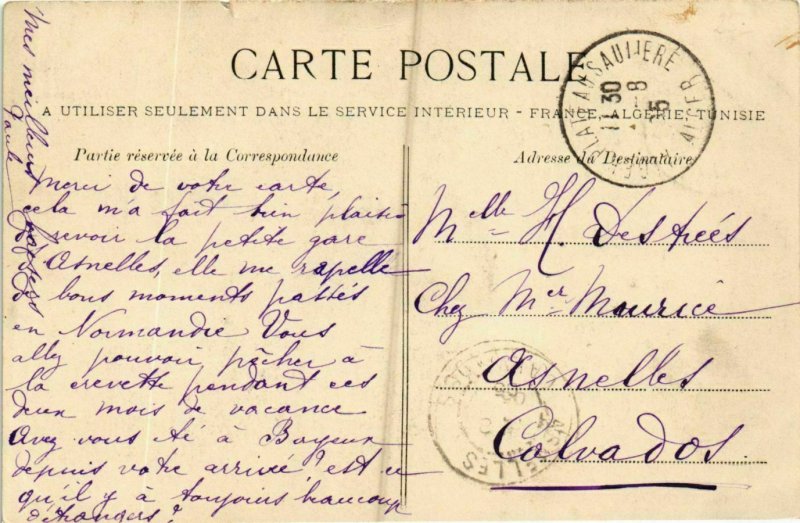 CARTE POSTALE
A UTILISER SEULEMENT DANS LE SERVICE INTERIEUR - FRANCE, ALGERIE, TUNISIE
Partie réservée à la Correspondance
Adresse du Destinataire
Merci de votre carte,
cela m'a fait bien plaisir
revoir la petite gare
Asnelles, elle me rapelle
de bons moments passés
en Normandie Vous
allez pouvoir pêcher à
la crevette pendant ces
deux mois de vacance
Avez vous été à Bayeux
depuis votre arrivée? est ce
qu'il y à toujours beaucoup
d'étrangers?
Mes meilleurs baisers
Melle H. Destrées
Chez Mer Maurice
Asnelles
Calvados.
11 30
8
15